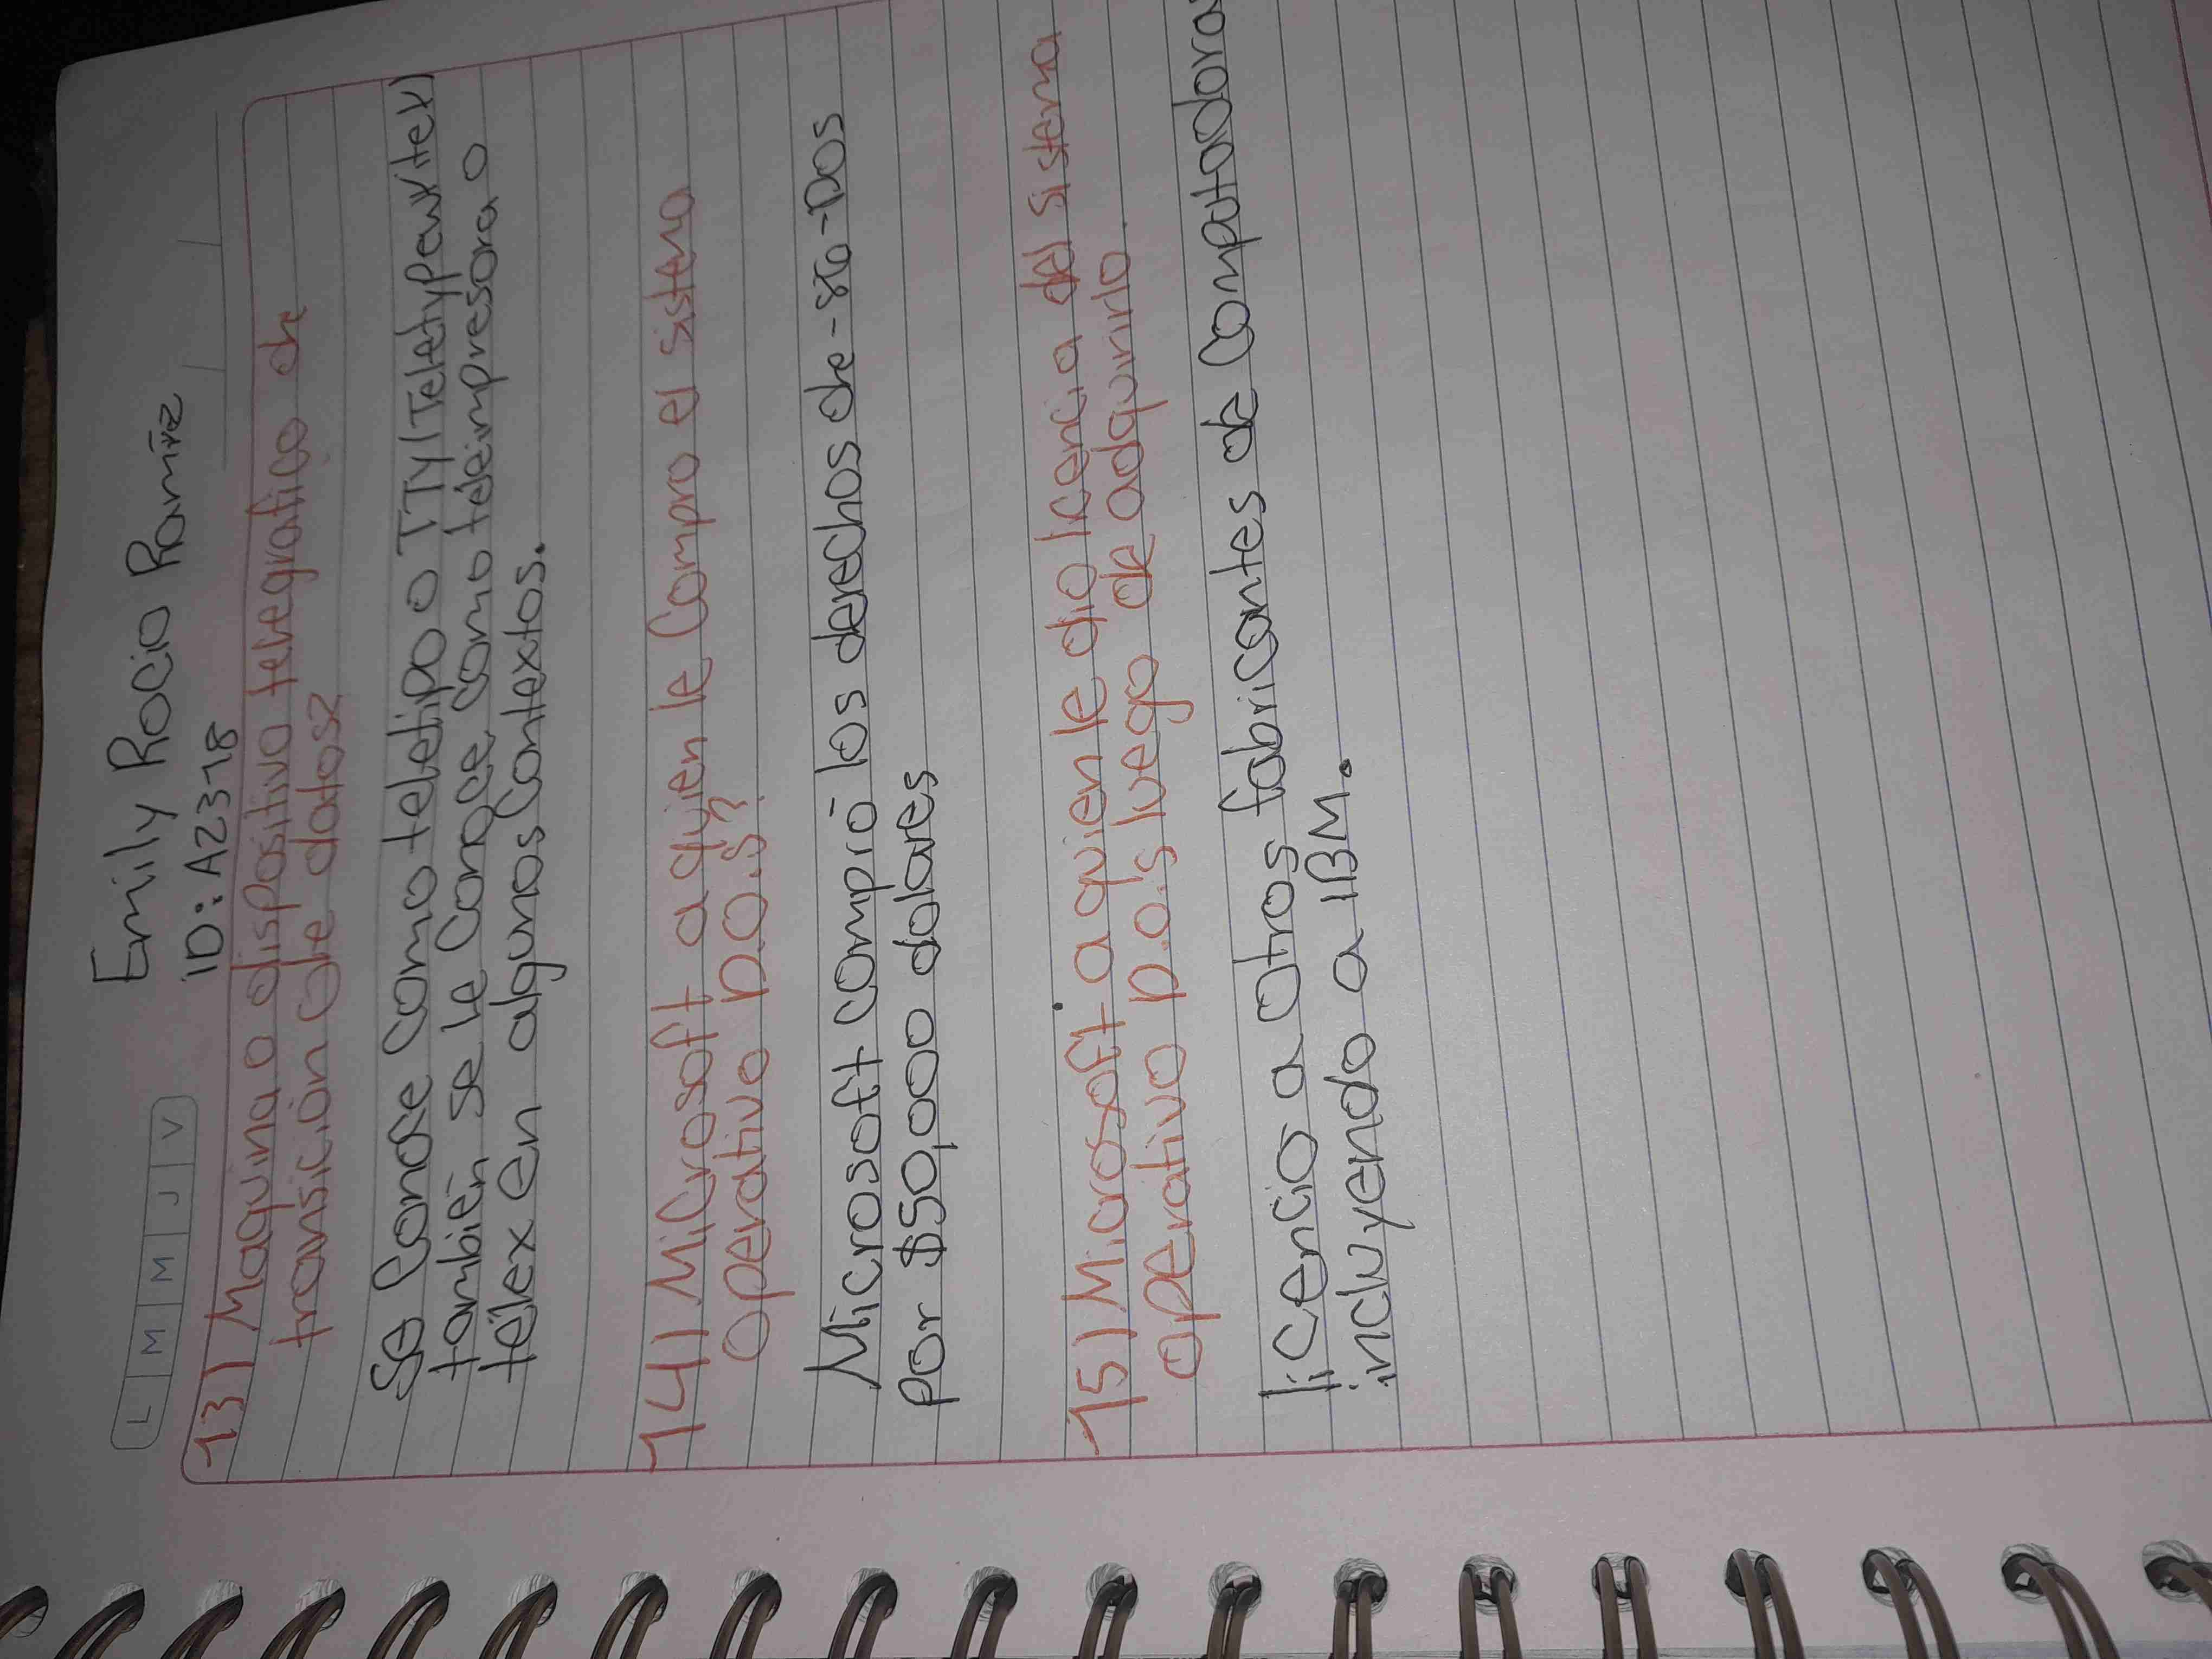 Emily Rocio Ramírez
ID: A2378
L M M J V
13) Maquina o dispositivo telegrafico de
transición de datos?
Se Conose como teletipo o TTY (Teletypewriter)
también se le Conoce, como teleimpresora o
télex en algunos contextos.
14) Microsoft a quien le Compro el sistema
operativo D.O.S?
Microsoft compró los derechos de -86-DOS
por $50,000 dolares
15) Microsoft a quien le dio licencia del sistema
operativo D.O.S luego de adquirirlo.
licencio a otros fabricantes de Computadoras
incluyendo a IBM.